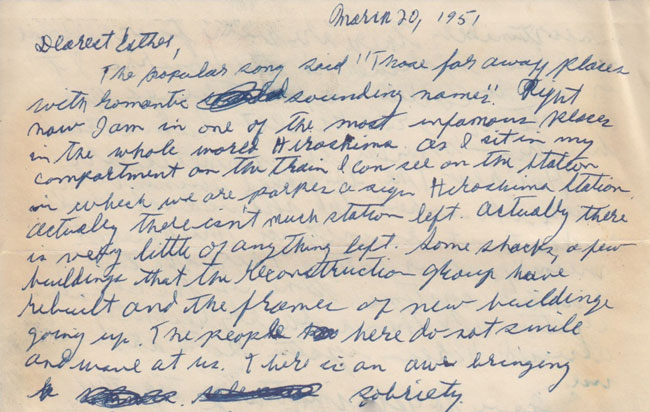 March 20, 1951
Dearest Esther,
The popular song said "Those far away places
with romantic sounding names". Right
now I am in one of the most infamous places
in the whole world Hiroshima. As I sit in my
compartment on the train I can see on the station
in which we are parked a sign Hiroshima Station.
Actually there isn't much station left. Actually there
is very little of anything left. Some shacks, a few
buildings that the reconstruction group have
rebuilt and the frames of new buildings
going up. The people here do not smile
and wave at us. There is an awe bringing
sobriety.